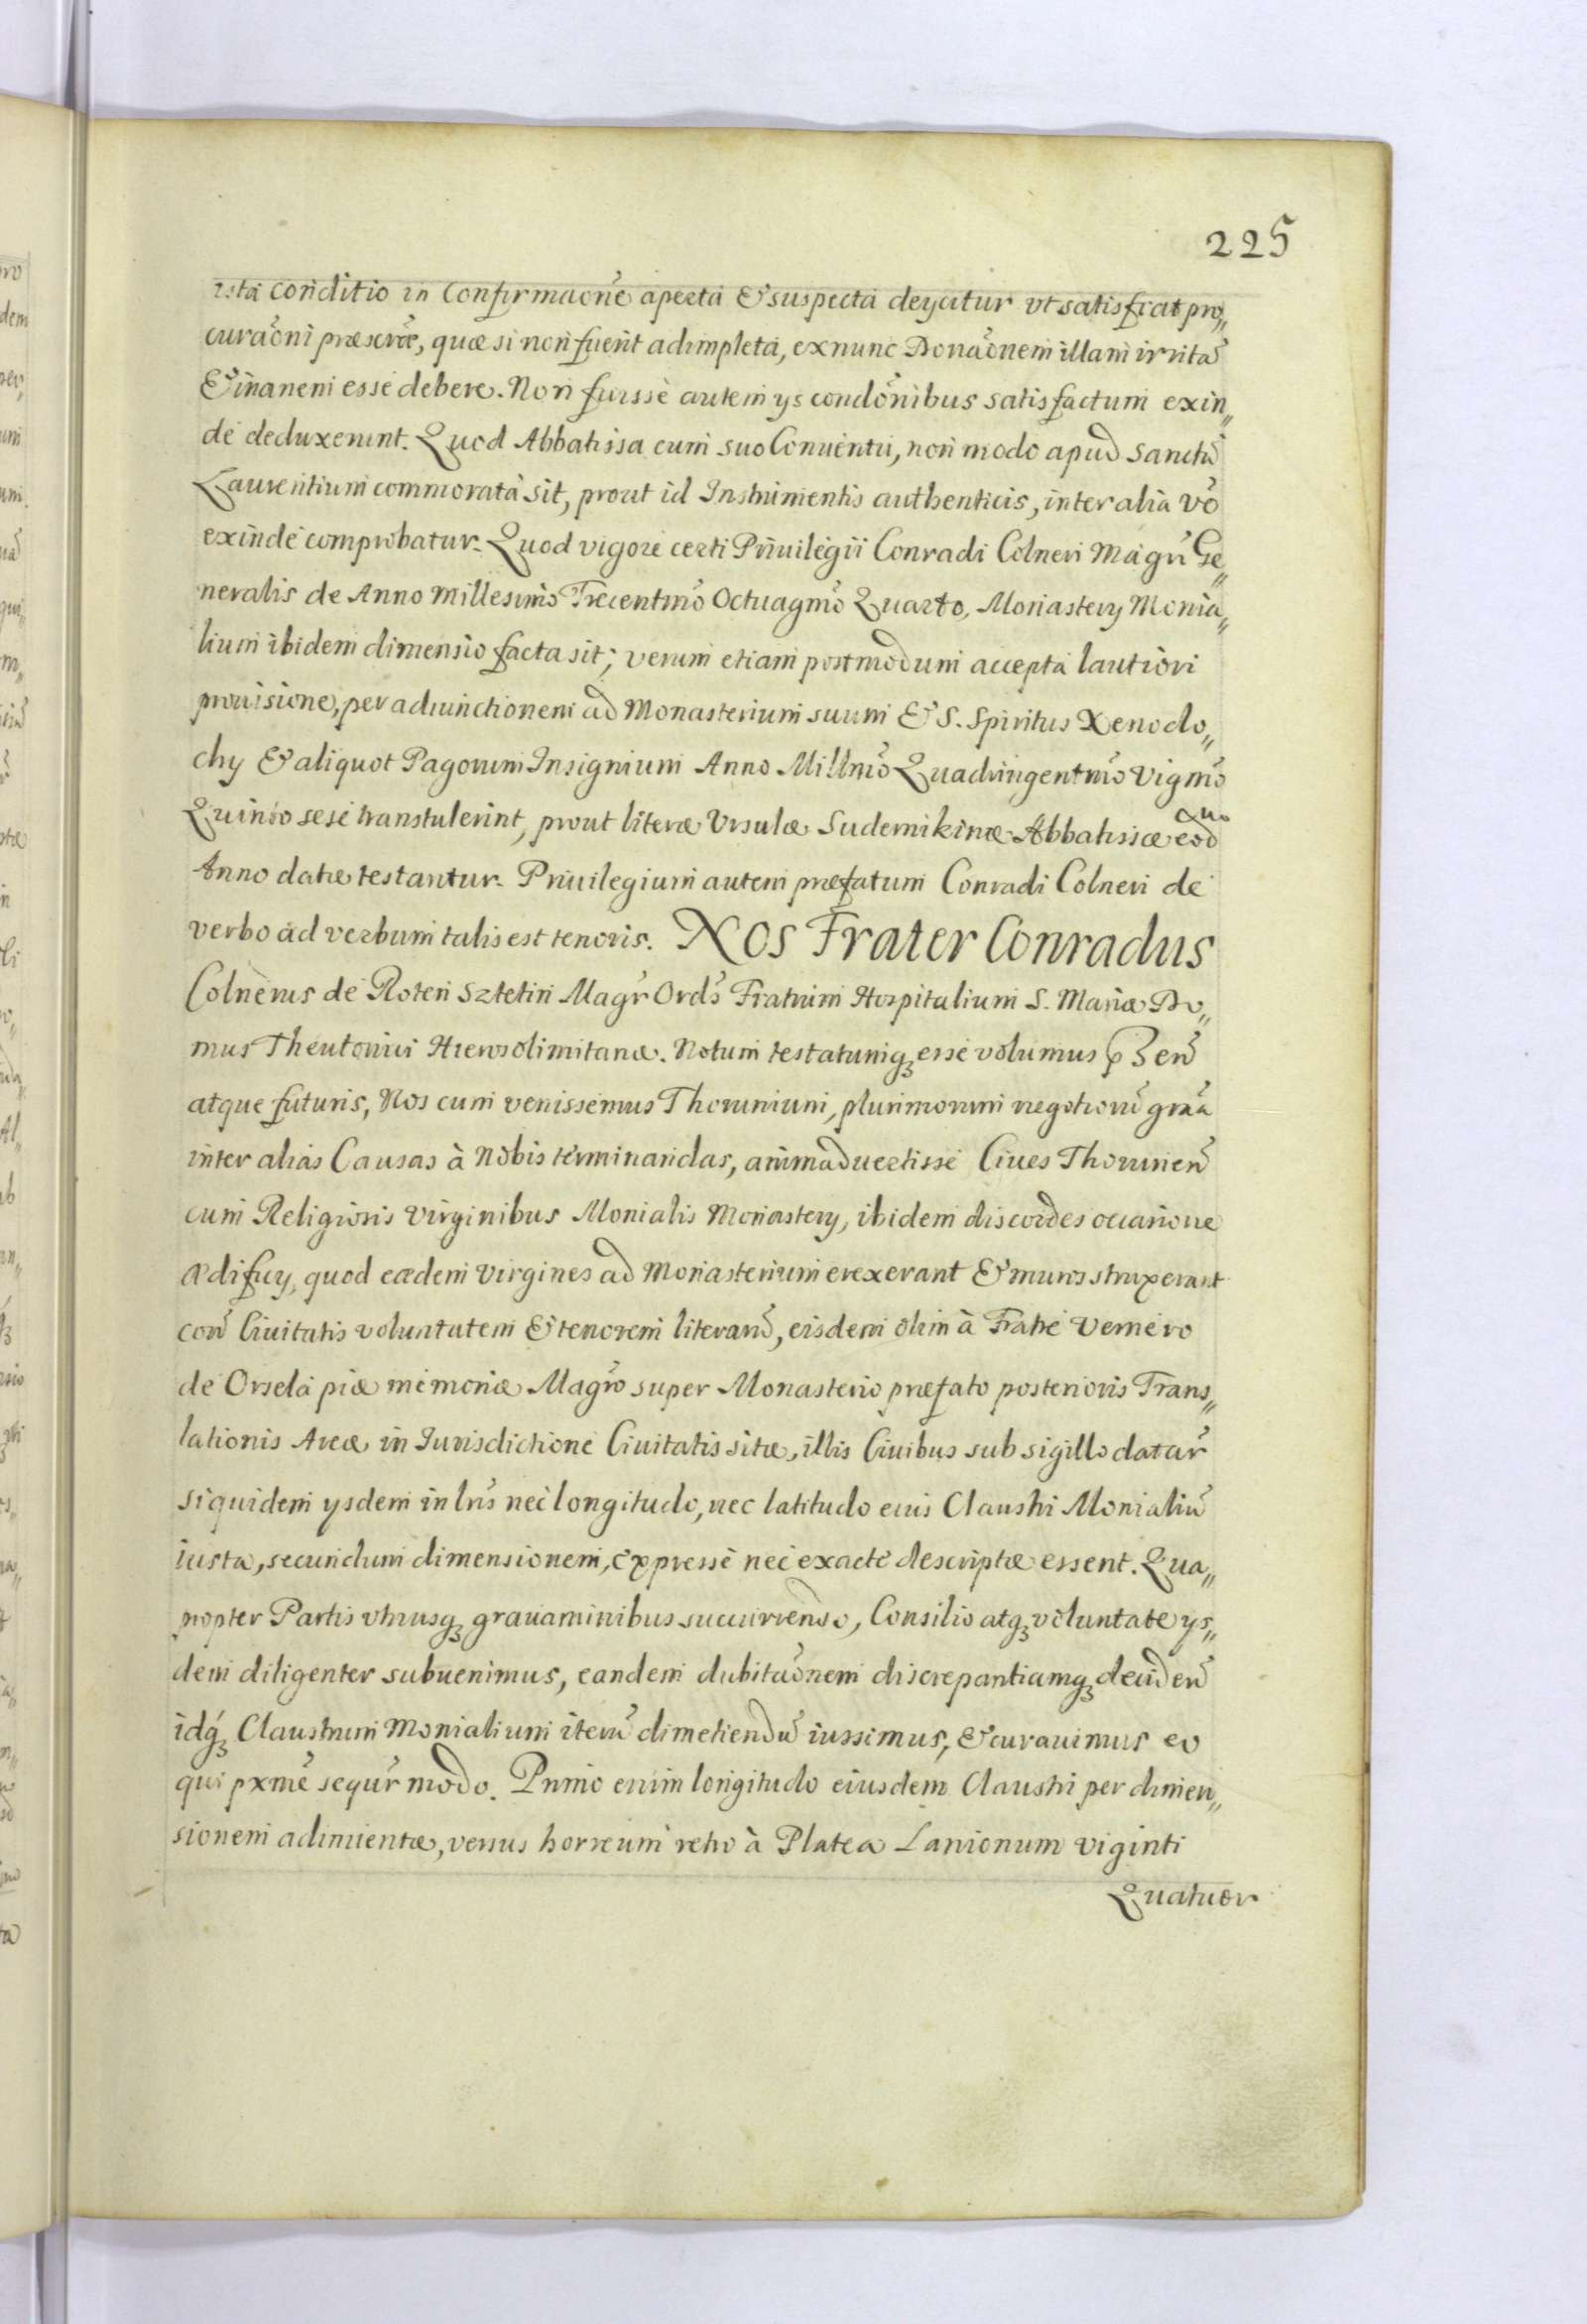 225
ista conditio in Confirmaõne aperta & suspecta deycitur vt satisfiat pro„
curaõni præscræ, quæ si non fuerit adimpleta, ex nunc Donaõnem illam irritã
& inanem esse debere. Non fuisse autem ys condõnibus satisfactum exin„
de deduxerunt. Quod Abbatissa cum suo Conuentu, non modo apud Sanctũ
Laurentium commorata sit, prout id Instrumentis authenticis, inter alia võ
exinde comprobatur. Quod vigore certi Priuilegii Conradi Colneri Magri Ge„
neralis de Anno Millesimo Trecentmõ Octuagmõ Quarto, Monastery Monia„
lium ibidem dimensio facta sit; verum etiam postmodum accepta lautiori
prouisione, per adiunctionem ad Monasterium suum & S. Spiritus Xenodo„
chy & aliquot Pagorum Insignium Anno Millmõ Quadringentmõ Vigmõ
Quinto sese transtulerint, prout literæ Vrsulæ Sudernikinæ Abbatissæ eod
Anno datæ testantur. Priuilegium autem præfatum Conradi Colneri de
verbo ad verbum talis est tenoris. Nos Frater Conradus
Colnerus de Roten Sztetin Magr Ordis Fratrum Hospitalium S. Mariæ Do„
mus Theutonici Hierosolimitanæ. Notum testatumq3 esse volumus p3en
atque futuris, Nos cum venissemus Thorunium, plurimorum negotiorũ graã
inter alias Causas à Nobis terminandas, animaduertisse Ciues Thorunen
cum Religiosis Virginibus Monialis Monastery, ibidem discordes occasione
ædificy, quod eædem Virgines ad Monasterium erexerant & muros struxerant
con Ciuitatis voluntatem & tenorem literarũ, eisdem olim à Fratre Vernero
de Orsela piæ memoriæ Magro super Monasterio præfato posterioris Trans„
lationis Areæ in Iurisdictione Ciuitatis sitæ, illis Ciuibus sub sigillo datar
siquidem ysdem in lris nec longitudo, nec latitudo eius Claustri Monialiũ
iusta, secundum dimensionem, expresse nec exacte descriptæ essent. Qua„
propter Partis vtriusq3 grauaminibus succurrendo, Consilio atq3 voluntate ys„
dem diligenter subuenimus, eandem dubitaõnem discrepantiamq3 deciden
idq3 Claustrum Monialium iterũ dimetiendũ iussimus, & curauimus eo
qui pxme sequr modo. Primo enim longitudo eiusdem Claustri per dimen„
sionem adimientæ, versus horreum retro à Platea Lanionum viginti
Quatuor